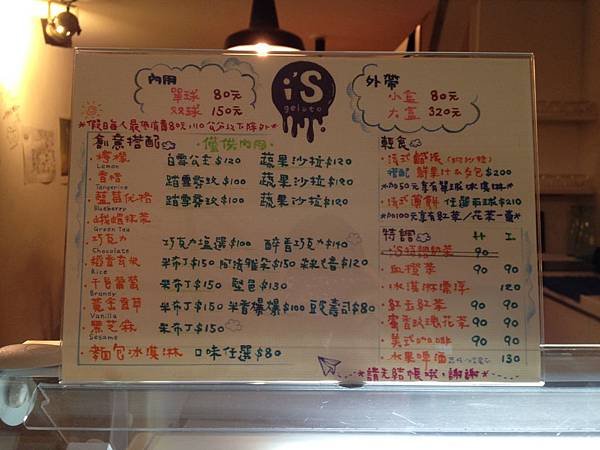 內用
單球 80元
双球 150元
i'S
gelato
外帶
小盒 80元
大盒 320元
*假日每人最低消費80元,110公分以下除外*
創意搭配 僅供內用
檸檬 白雪公主$120 蔬果沙拉$120
Lemon
香橙 踏雪尋玖$100 蔬果沙拉$120
Tangerine
藍莓优格 踏雪尋玖$100 蔬果沙拉$120
Blueberry
峨嵋抹茶
Green Tea
巧克力 巧克力溫選$100 醉香巧克力$140
Chocolate
稻香玄米 米布丁$150 阿法雅朵$150 $120
Rice
千邑葡萄 米布丁$150 藍色$130
Brandy
黃金香草 米布丁$150 米香爆爆$100 $80
Vanilla
黑芝麻 米布丁$150
Sesame
麵包冰淇淋 口味任選$80
輕食
法式鹹派
搭配 鮮果什么夕包$200
*加50元享有單球冰淇淋*
法式薄餅 任選兩球$210
*加100元享有紅茶/花茶一壷*
特調 H I
90
血橙茶 90 90
冰淇淋漂浮 120
紅玉紅茶 90 90
蜜香玫瑰花茶 90 90
美式 90 90
水果啤酒 130
*請先結帳哦,謝謝*